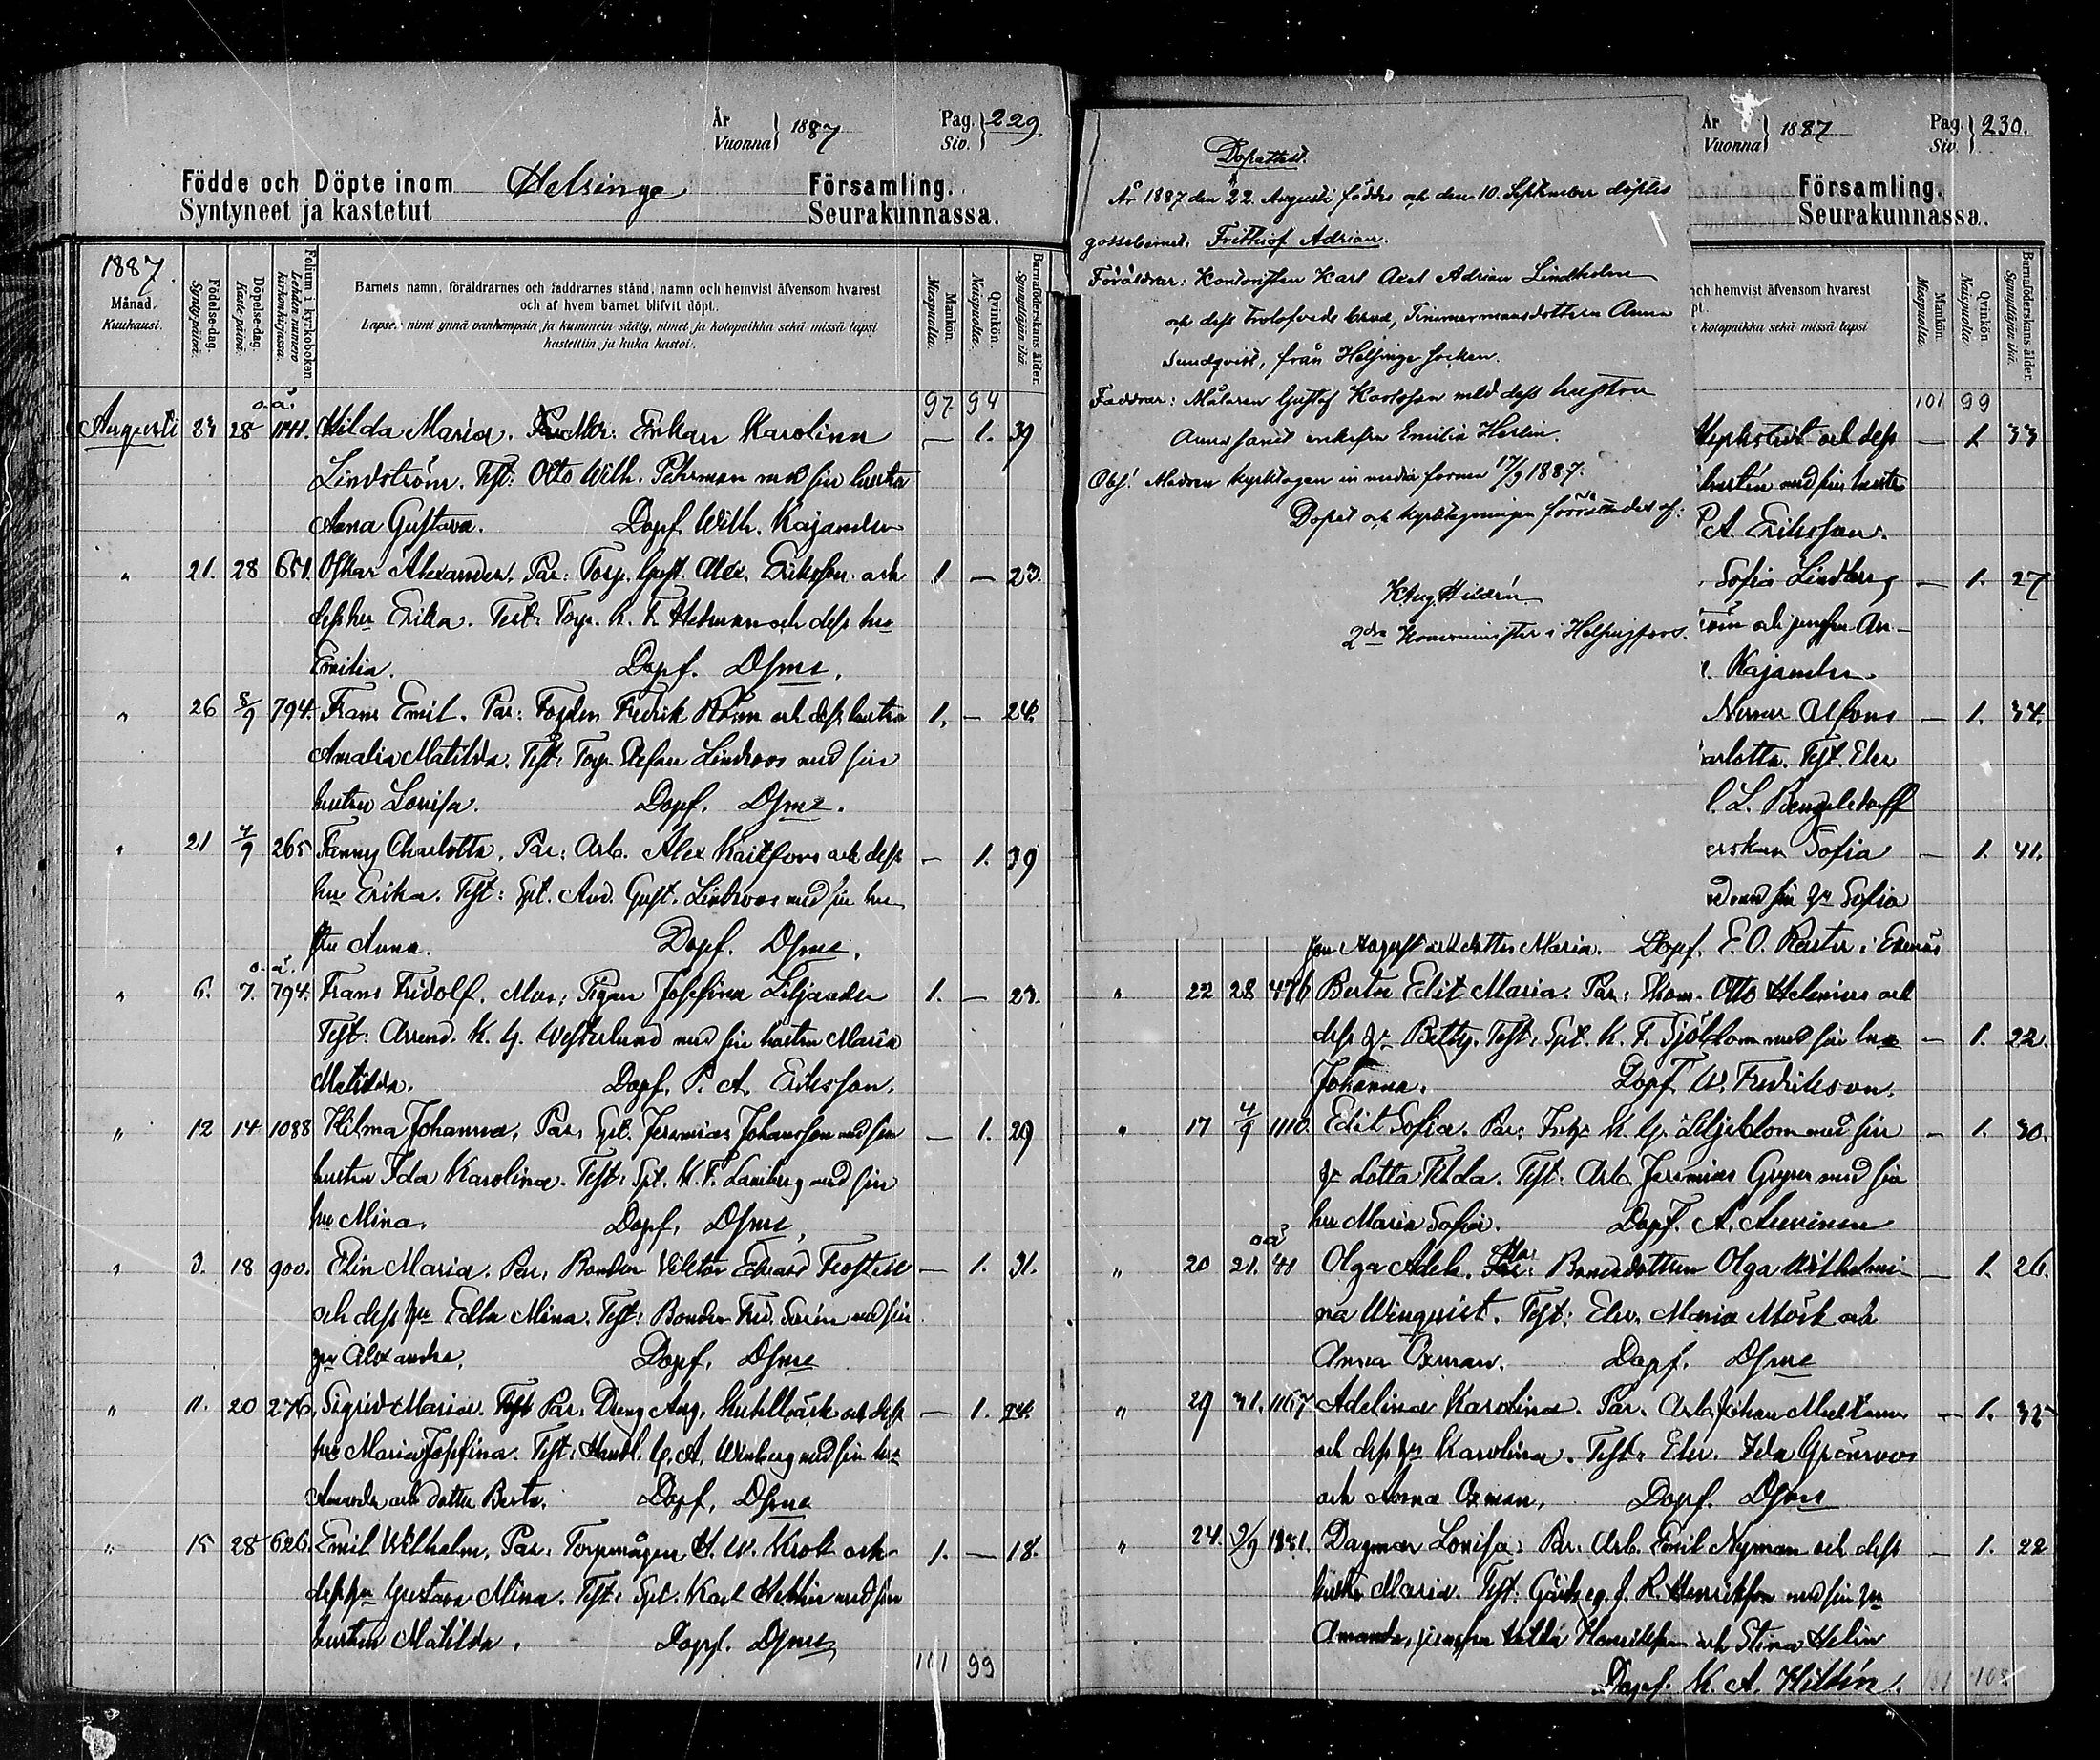 År
Vuonna } 1887
Pag.
Siv. } 229.
Födde och Döpte inom Helsinge Församling.
Syntyneet ja kastetut Seurakunnassa.
1887.
Månad.
Kuukausi.
Födelse-dag.
Syntymäpäivä.
Döpelse-dag.
Kaste-päivä.
Folium i kyrkoboken.
Lehden numero kirkonkirjassa.
Barnets namn, föräldrarnes och faddrarnes stånd, namn och hemvist äfvensom hvarest
och af hvem barnet blifvit döpt.
Lapsen nimi ynnä vanhempain ja kummein sääty, nimet ja kotopaikka sekä missä lapsi
kastettiin ja kuka kastoi.
Mankön.
Miespuolia.
Qvinkön.
Naispuolia.
Barnaföderskans ålder.
Synnyttäjän ikä.
o.ä. 97 94
Augusti 23 28 1141. Hilda Maria. Mor: Enkan Karolina — 1. 39
Lindström. Test: Otto Wilh. Pehrman med sin hustru
Anna Gustava. Döpf. Wilh. Kajander
" 21. 28 651. Oskar Alexander. Par: Torp. Gust. Alex. Eriksson och 1 — 23.
dess hu Erika. Test: Torp. K. F. Hedman och dess hu
Emilia. Döpf. Dsme.
" 26 8/9 794. Frans Emil. Par: Fogden Fredrik Roim och dess hustru 1. — 24.
Amalia Matilda. Test: Torp. Stefan Lindroos med sin
hustru Lovisa. Döpf. Dsme.
" 21 4/9 265 Fanny Charlotta. Par: Arb. Alex Kaitfors och dess — 1. 39
hu Erika. Test: Spt. And. Gust. Lindroos med sin hu
stru Anna. Döpf. Dsme.
o.ä.
" 6. 7. 794. Frans Fridolf. Mor: Pigan Josefina Liljander 1. — 23.
Test: Arrend. K. G. Westerlund med sin hustru Maria
Matilda. Döpf. P. A. Eriksson.
" 12 14 1088 Hilma Johanna. Par: Spt. Jeremias Johansson med sin — 1. 29
hustru Ida Karolina. Test: Spt. K. F. Lamberg med sin
hu Mina. Döpf. Dsme.
" 3. 18 900. Elin Maria. Par: Bonden Viktor Edvard Frostell — 1. 31.
och dess hu Edla Mina. Test: Bonden Fred. Sorén med sin
hu Alexandra. Döpf. Dsme
" 11. 20 276. Sigrid Maria. Par: Dreng Aug. och dess — 1. 24.
hu Maria Josefina. Test: Handl. G. A. Winberg med sin hu
Amanda och dotter Berta. Döpf. Dsme
" 15 28 626. Emil Wilhelm. Par: Torpmågen H. W. Krok och 1. — 18.
dess hu Gustava Mina. Test: Spt. Karl Hellin med sin
hustru Matilda. Döpf. Dsme
101 99
Dopattest.
År 1887 den 22. Augusti föddes och den 10. September döptes
gossebarnet Frithiof Adrian.
Föräldrar: Kontoristen Karl Axel Adrian Lindholm
och dess trolofvade brud, Timmermansdottern Anna
Sundqvist, från Helsinge socken.
Faddrar: Målaren Gustaf Karlsson med dess hustru
Anna samt enkefru Emilia Herlin.
Obs! Modren kyrktagen i mindre formen 17/9 1887.
Dopet och kyrktagningen förrättades af:
K Aug Hildén
2dra Komminister i Helsingfors.
År
Vuonna } 1887
Pag.
Siv. } 230.
Församling.
Seurakunnassa.
och hemvist äfvensom hvarest
pt.
kotopaikka sekä missä lapsi
Mankön.
Miespuolia.
Qvinkön.
Naispuolia.
Barnaföderskans ålder.
Synnyttäjän ikä.
101 99
och dess — 1 33
med sin hustru
P A. Eriksson.
Sofia Lindberg — 1. 27
och jungfru An-
Kajander.
Werner Alfons — 1. 34.
arlotta. Test. Elev
L. Bengelsdorff
erskan Sofia — 1. 41.
med sin hu Sofia
son August och dotter Maria. Döpf. E. O. Reuter i Ekenäs
" 22 28 476 Berta Edit Maria. Par: Skom. Otto Helenius och
dess hu Betty. Test: Spt. K. F. Sjöblom med sin hu — 1. 22.
Johanna. Döpf. W. Fredrikson.
" 17 4/9 1110. Edit Sofia. Par: K. G. Liljeblom med sin — 1. 30.
hu Lotta Tilda. Test: Arb. Jeremias Gryn med sin
hu Maria Sofia. Döpf. A. Auvinen
o.ä.
" 20 21. 41 Olga Adele. Mor: Bondedottern Olga Wilhelmi- — 1. 26.
na Winqvist. Test: Elev. Maria Mörk och
Anna Oxman. Döpf. Dsme
" 29 31. 1167 Adelina Karolina. Par: Arb. Johan — 1. 32
och dess hu Karolina. Test: Elev. Ida Grönroos
och Anna Oxman. Döpf. Dsme
" 24. 2/9 1331. Dagmar Lovisa. Par: Arb. Emil Nyman och dess — 1. 22
hustru Maria. Test: Gårdseg. J. R. Henriksson med sin hu
Amanda, jungfru Hilda Henriksson och Stina Helin
Döpf. K. A. Hildén. 101 108